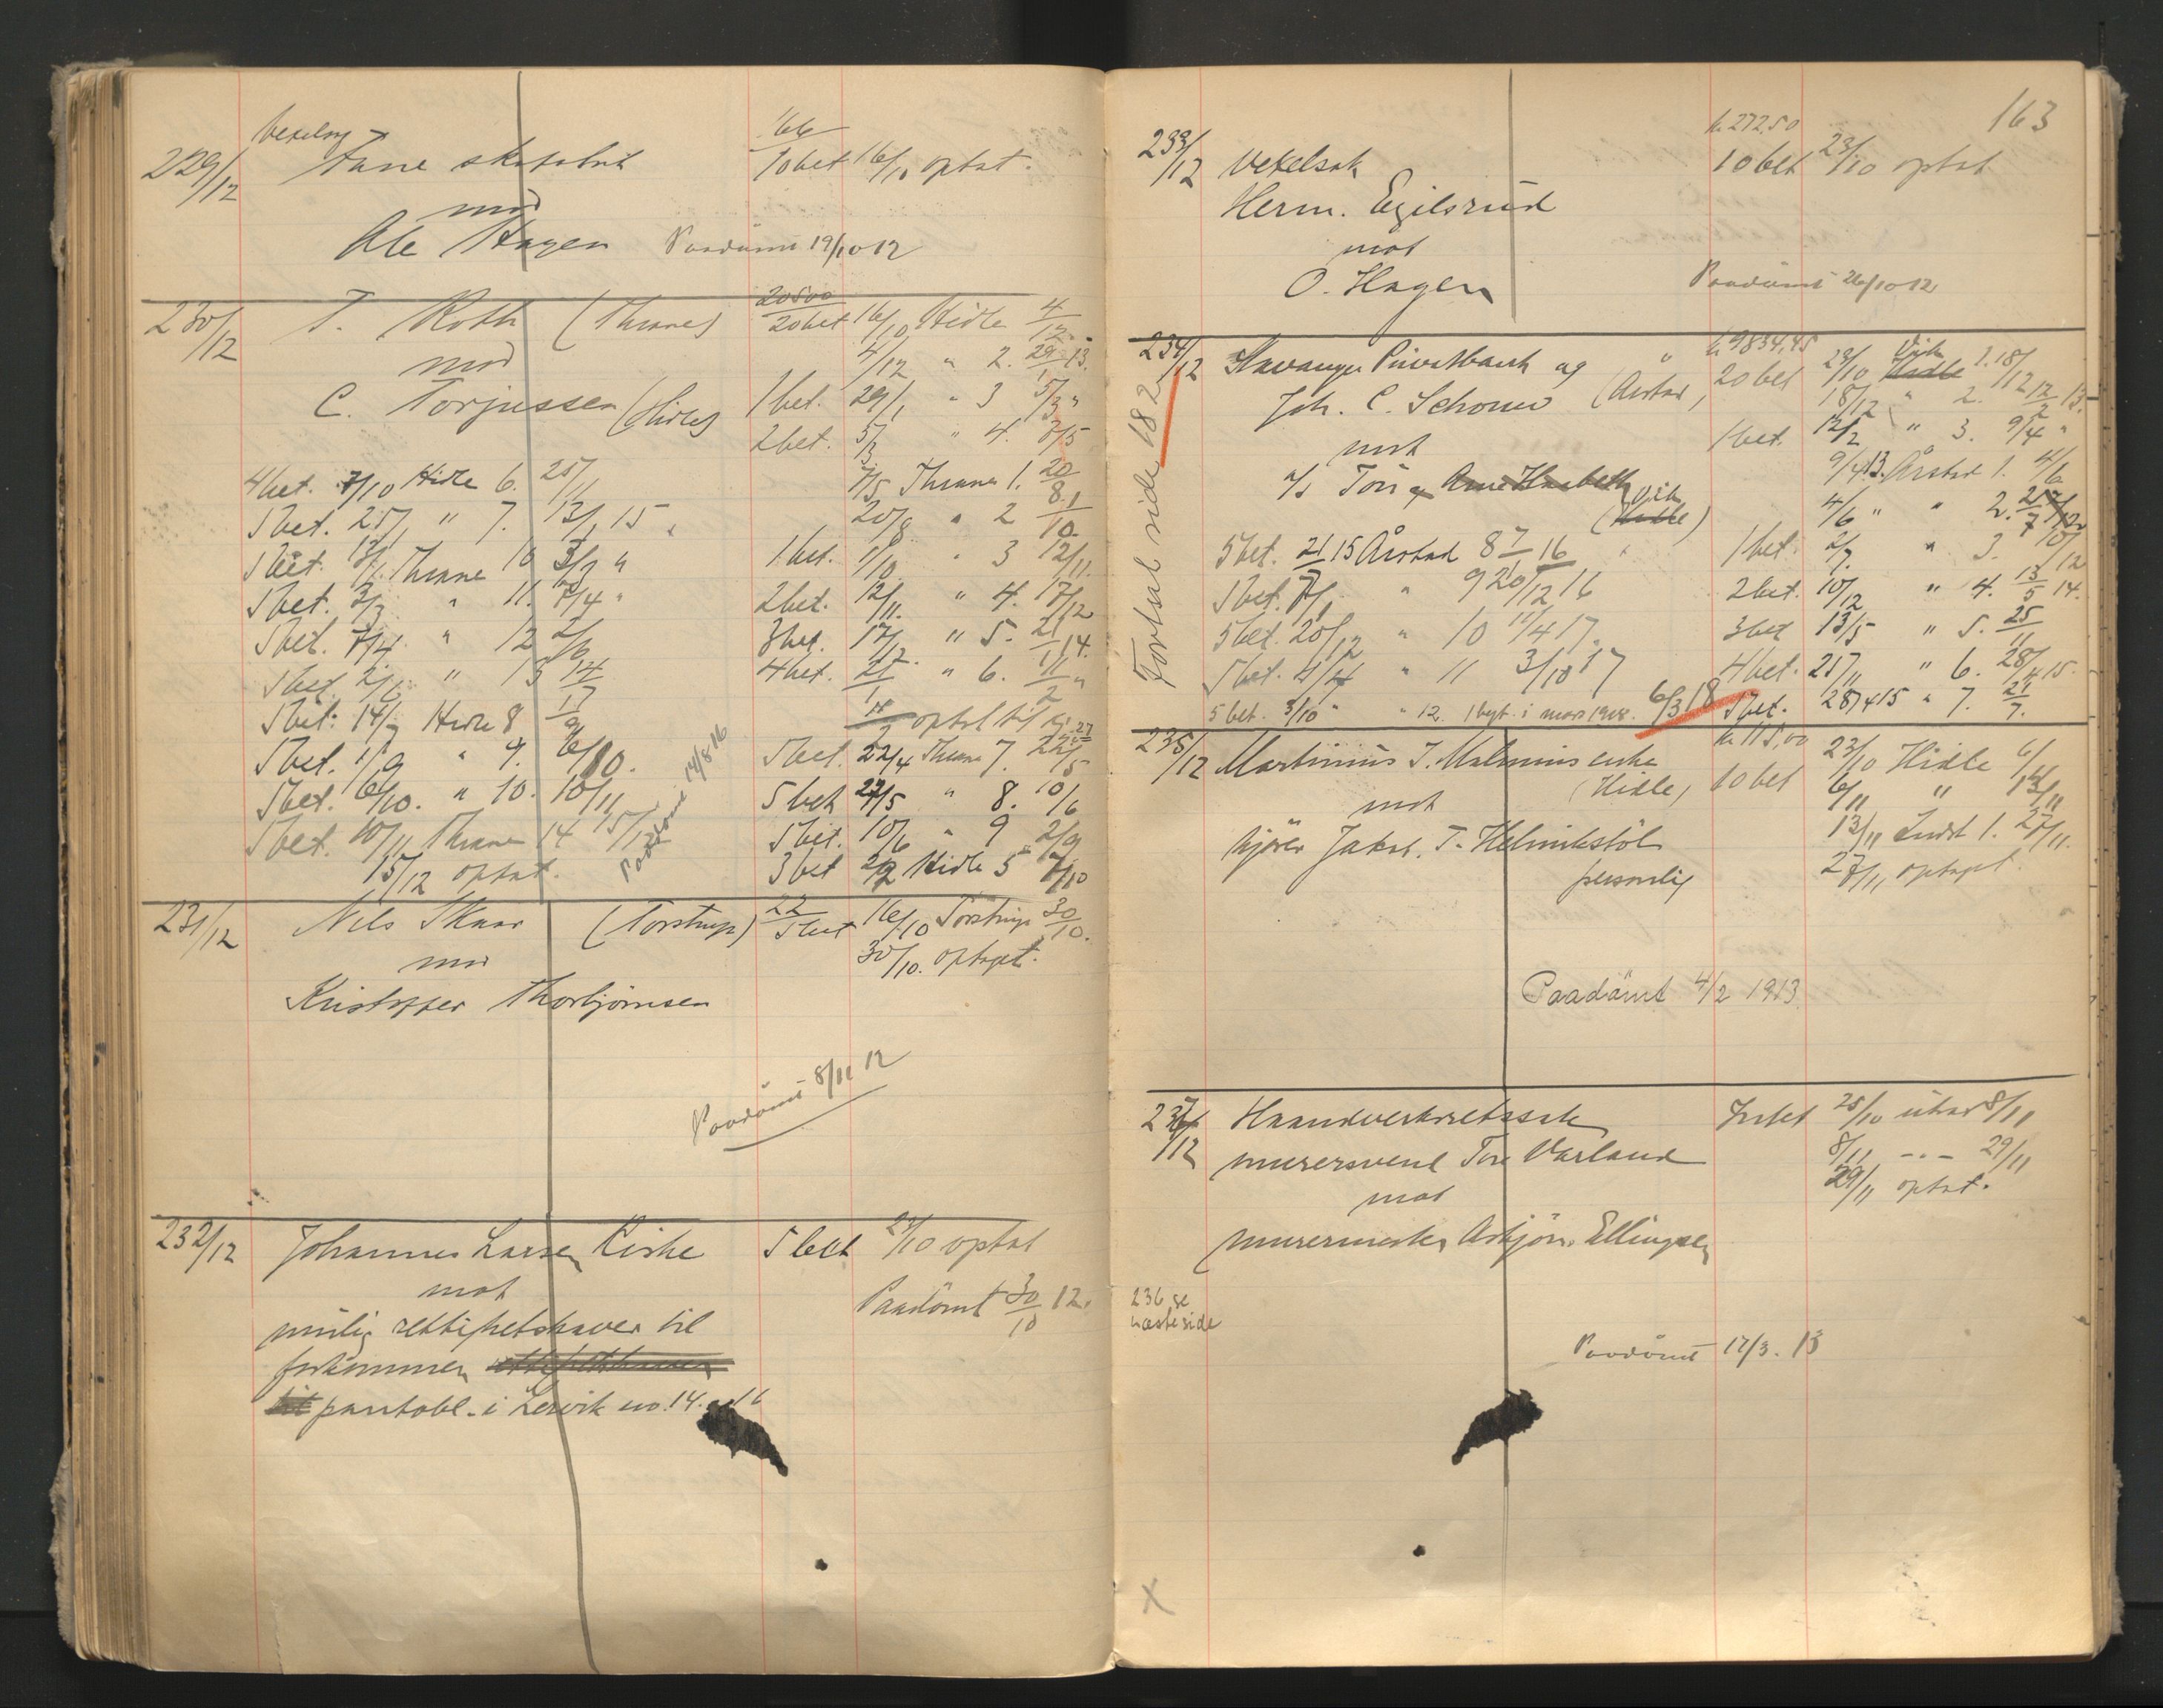 229/12
Aane skofabrik
mod
Ole Hagen Paadömt 19/10 12
66
10 bet 16/10 optat.
230/12 T. Roth (Thrane) 20500
20 bet 16/10 Hidle 4/12
mod
4/12 " 2. 29/1 13.
C. Torjussen (Hidle) 1 bet. 29/1 " 3 5/3 "
2 bet. 5/3 " 4. 7/5
4 bet. 7/10 Hidle 6. 25/11
7/5 Thrane 1. 20/8
5 bet. 25/11 " 7. 13/1 15
20/8 " 2 1/10.
5 bet. 13/1 Thrane 10 3/3 "
1 bet. 1/10 " 3 12/11.
5 bet. 3/3 " 11. 7/4 "
2 bet. 12/11. " 4. 17/12
5 bet. 7/4 " 12 2/6
3 bet. 17/12. " 5. 21/1 14.
5 bet. 2/6 " 13 14/7
4 bet. 21/1 " 6. 11/2 "
5 bet. 14/7 Hidle 8 1/9
optat til
5 bet. 1/9 " 9. 6/10.
5 bet. 22/4 Thrane 7. 27/5
5 bet. 6/10. " 10. 10/11
5 bet 27/5 " 8. 10/6
5 bet. 10/11 Thrane 14 15/12
5 bet. 10/6 " 9 2/9
15/12 optat.
3 bet 2/9 Hidle 5 7/10
Paadömt 14/8 16
231/12 Nils Skaar (Torstrup) 22
5 bet 16/10 Torstrup 30/10.
mod
30/10. optaget.
Kristoffer Thorbjörnsen
Paadömt 8/11 12
232/12 Johannes Larsen Kirke 5 bet 23/10 optat
mot
Paadömt 30/10 12.
mulig rettighetshaver til
forkommen
pantobl. i Lervik no. 14. og 16
163
233/12 Vekselsak
kr. 272.50
10 bet 23/10 optat
Herm. Egilsrud
mot
O. Hagen
Paadömt 26/10 12
234/12 Stavanger Privatbank og
kr. 9834,45
20 bet 23/10 Vik Hidle 1. 18/12
Joh. C. Schouw (Aarstad)
18/12 " 2. 12/2 13.
mot
1 bet. 12/2 " 3. 9/4 "
A/S Tou
9/4 13. Årstad 1. 4/6
(Vik Hidle)
4/6 " " 2. 2/7
5 bet. 21/7 15 Årstad 8 7/1 16
1 bet. 2/7. " 3. 10/12
5 bet. 7/1 " 9 20/12 16
2 bet. 10/12 " 4. 13/5 14.
5 bet. 20/12 " 10 11/4 17.
3 bet 13/5 " 5. 25/11
5 bet. 11/4 " 11 3/10 17
4 bet. " 6. 28/4 15.
5 bet. 3/10 " " 12. 1 bet. i mars 1918. 6/3 18
5 bet. 28/4 15 " 7. 21/7.
Fortsat side 182
235/12 Martinius J. Malmins enke
kr. 115,00
10 bet 23/10 Hidle 6/11
(Hidle)
6/11 " 13/11
mot
13/11 Indst 1. 27/11.
kjörer Jakob T. Helmikstöl
personlig
27/11 optaget.
Paadömt 4/2 1913
237/12 Haandverksretssak
Intet 25/10 utsat 8/11
murersvend Tore Varland
8/11 - " - 29/11
mot
29/11 optat.
murermester Asbjörn Ellingsen
236 se
næste side
Paadömt 17/3. 13
X